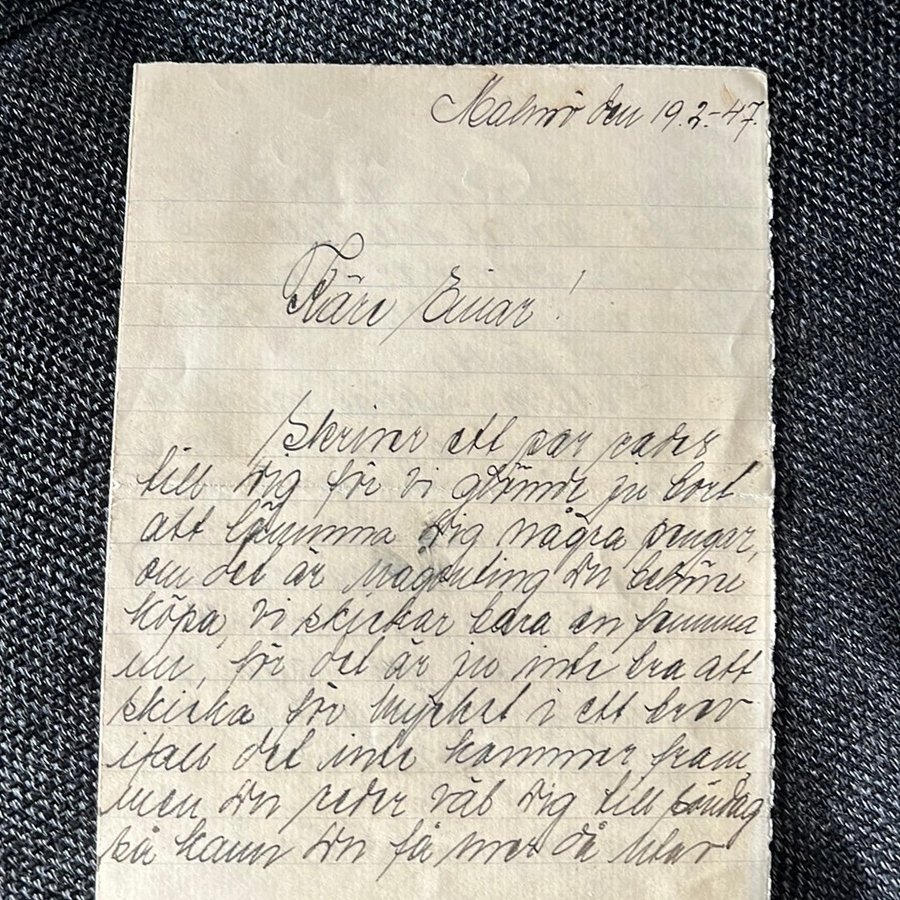 Malmö den 19.2.-47.
Käre Einar!
Skriver ett par rader
till Dig för vi glömde ju bort
att lämmna Dig några pengar,
om det är någonting Du behöve
köpa, vi skickar bara en femma
nu, för det är ju inte bra att
skicka för mycket i ett brev
ifall det inte kommer fram,
men Du reder väl Dig till söndag
så kann Du få mer då utav